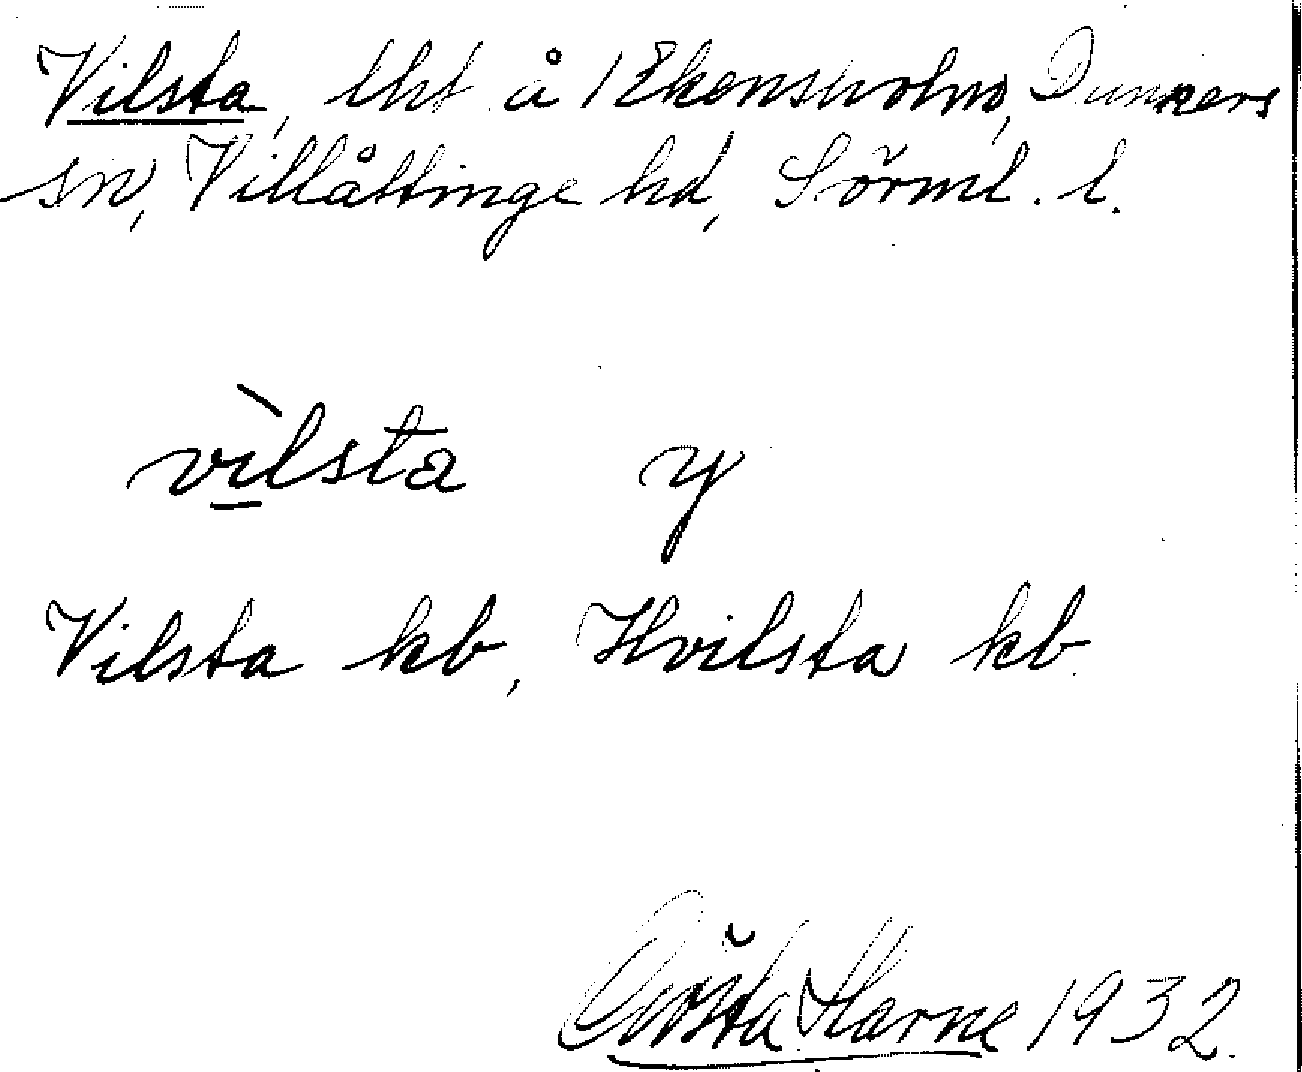 Vilsta, tht å Ekensholm, Dunkers
sn, Villåttinge hd, Sörml. l.
vìlsta y
Vilsta kb, Hvilsta kb.
Gösta Harne 1932.